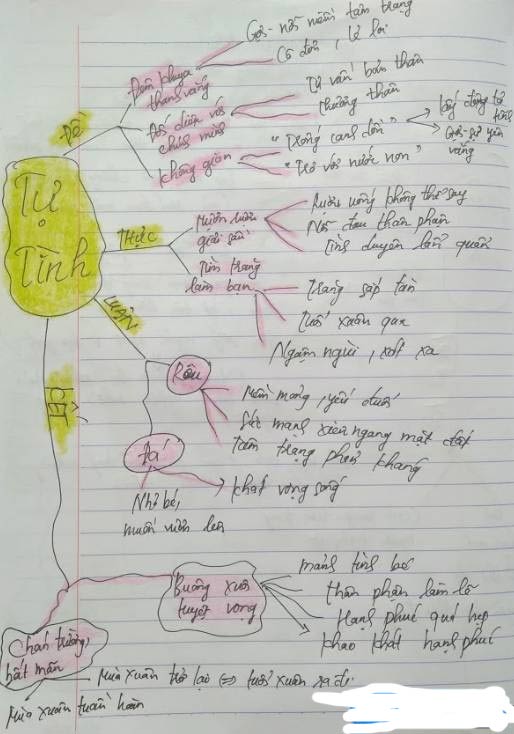 Tự
Tình
Đề
Đêm khuya
thanh vắng
Gợi nỗi niềm tâm trạng
Cô đơn, lẻ loi
Đối diện với
chính mình
Tự vấn bản thân
thương thân
không gian
"Trống canh dồn"
lấy động tả
tĩnh
Gợi sự yên
vắng
"Trơ với nước non"
Thực
Mượn rượu
giải sầu
Rượu uống không thể say
Nỗi đau thân phận
Tình duyên lẩn quẩn
Tìm trăng
làm bạn
Trăng sắp tàn
Tuổi xuân qua
Ngậm ngùi, xót xa
Luận
Rêu
Mềm mỏng, yếu đuối
Sức mạnh xiên ngang mặt đất
Tâm trạng phản kháng
Đá
Nhỏ bé,
muốn vươn lên
khát vọng sống
KẾT
Buông xuôi
tuyệt vọng
mảnh tình bé
thân phận làm lẽ
Hạnh phúc quá hẹp
khao khát hạnh phúc
Chán trường,
bất mãn
Mùa xuân trở lại ⇔ tuổi xuân ra đi
Mùa xuân tuần hoàn